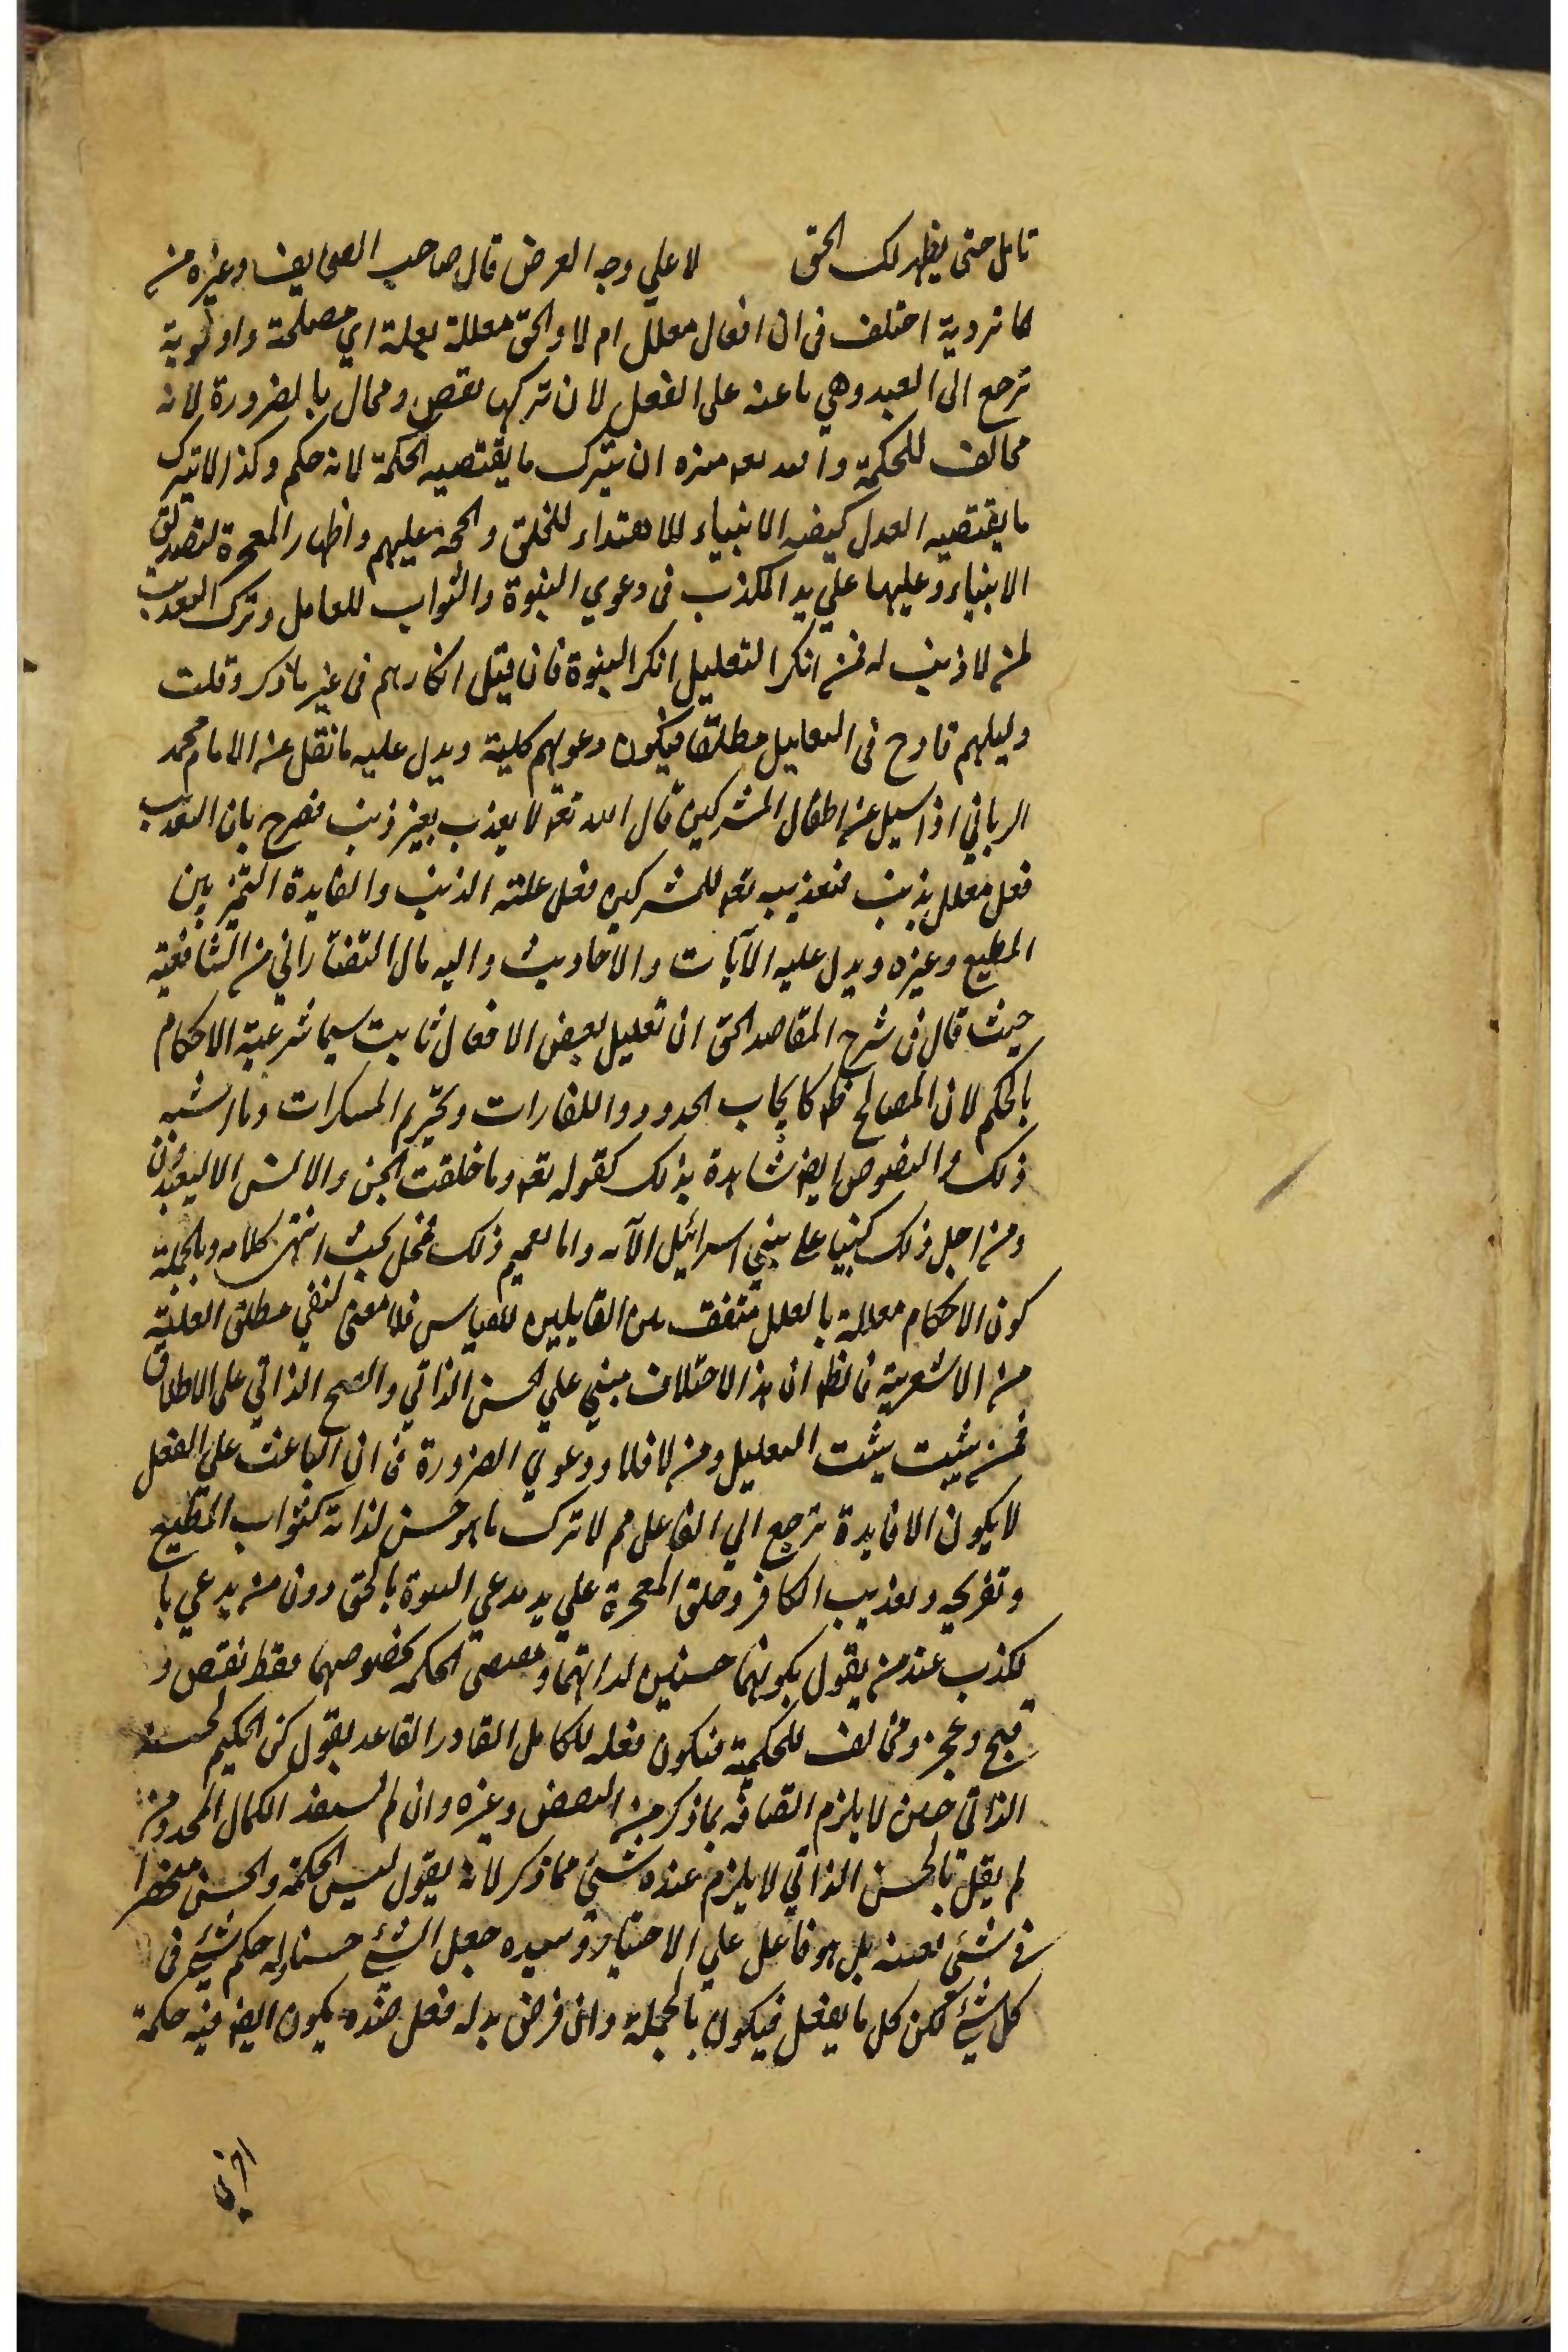 تامل حتى يظهر لك الحق لا علي وجه العرض قال صاحب الصحايف وغيره من
الماتردية اختلف في ان افعال معلل ام لا والحق معللة بعلة اي مصلحة واولوية
ترجع الى العبد وهي باعثه على الفعل لان تركها نقص ومحال بالضرورة لانه
مخالف للحكمة والله تعه منزه ان يترك ما يقتضيه الحكمة لانه حكم وكذا لا يترك
ما يقتضيه العدل كبعثه الانبياء للاهتداء للخلق والحجة عليهم واظهار المعجزة لتصديق
الانبياء وعليها علي يد المكذب في دعوي النبوة والثواب للعامل وترك التعذيب
لمن لا ذنب له فمن انكر التعليل انكر النبوة فان قيل انكارهم في غير ما ذكر وقلت
دليلهم قادح في التعليل مطلقا فيكون دعولهم كلية ويدل عليه ما نقل عن الامام محمد
الرباني اذا سيل عن اطفال المشركين قال الله تعه لا يعذب بغير ذنب فصرح بان التعذيب
فعل معلل بذنب فتعذيب تعه للمشركين فعل علته الذنب والفايدة التميز بين
المطيع وغيره ويدل عليه الآيات والاحاديث واليه مال التفتازاني من الشافعية
حيث قال في شرح المقاصد الحق ان تعليل بعض الافعال ثابت سيما شرعية الاحكام
بالحكم لان المصالح ظه كايجاب الحدود والكفارات وتحريم المسكرات وما اشبه
ذلك والنصوص ايضه شاهدة بذلك كقوله تعه وما خلقت الجن والانس الا ليعبدون
ومن اجل ذلك كتبنا على بني اسرائيل الآيه واما تعميم ذلك فمحل بحث انتهى كلامه وبالجملة
كون الاحكام معللة بالعلل متفق بين القايلين للقياس فلا معنى لنفي مطلق العلية
من الاشعرية فالظه ان هذا الاختلاف مبني علي الحسن الذاتي والقبح الذاتي على الاطلاق
فمن يثبت يثبت التعليل ومن لا فلا ودعوي الضرورة في ان الباعث علي الفعل
لا يكون الا فايدة ترجع الي الفاعل مم لا ترك ما هو حسن لذاته كثواب المطيع
وتفريحه وتعذيب الكافر وخلق المعجزة علي يد مدعي النبوة بالحق دون من يدعي با
لكذب عند من يقول بكونهما حسنين لذاتهما ومقتضى الحكمه بخصوصهما فقط نقص و
قبح وعجز ومخالف للحكمة فيكون فعله للكامل القادر القاعد بقول كن الحكيم لحسنه
الذاتي حين لا يلزم اتصافه بما ذكر من النقص وغيره وان لم يستفد الكمال المحد ومن
لم يقل بالحسن الذاتي لا يلزم عنده شئ مما ذكر لانه يقول ليس الحكمة والحسن منحصرا
في شئ بعينه بل هو فاعل علي الاختيار وبيده جعل الشئ حسنا وله حكم شئ في
كل شئ لكن كل ما يفعل فيكون بالحكمة وان فرض بدله فعل ضده يكون ايضه فيه حكمة